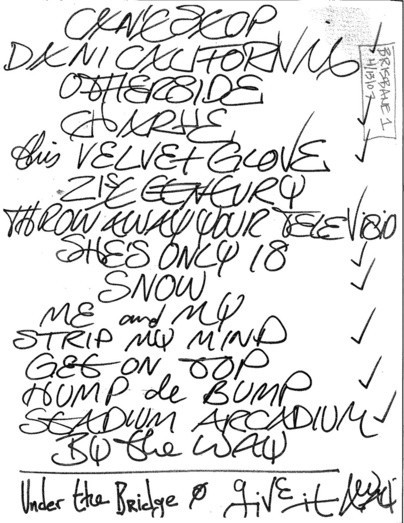 CANT STOP
DANI CALIFORNIA
OTHERSIDE
CHARLIE
this VELVET GLOVE
21st CENTURY
THROW AWAY YOUR TELEVISIO
SHE'S ONLY 18
SNOW
ME and MY
STRIP MY MIND
GET ON TOP
HUMP de BUMP
STADIUM ARCADIUM
BY the WAY
Under the Bridge Ø give it away
BRISBANE 1